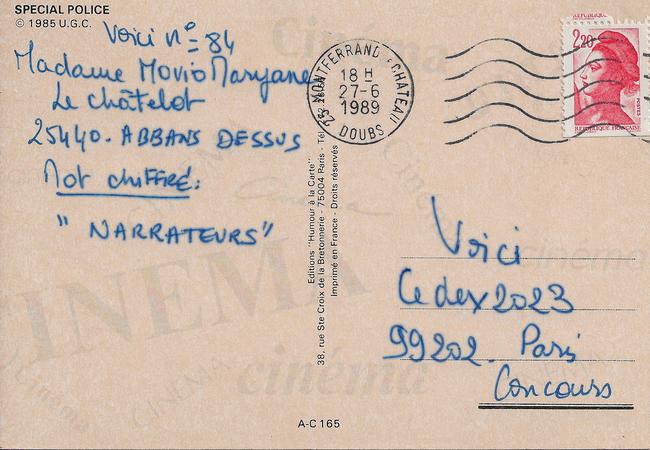 SPECIAL POLICE
© 1985 U.G.C.
Voici n° = 84
Madame Movio Maryane
Le châtelot
25440. ABBANS DESSUS
Mot chiffré:
"NARRATEURS"
MONTFERRAND CHATEAU
18 H
27-6
1989
DOUBS
2,20
POSTES
REPUBLIQUE FRANÇAISE
Editions "Humour à la Carte"
38, rue Ste Croix de la Bretonnerie - 75004 Paris - Tél
Imprimé en France - Droits réservés
Voici
Cedex 2023
99202. Paris
Concours
A-C 165
cinéma
CINEMA
cinéma
cinéma